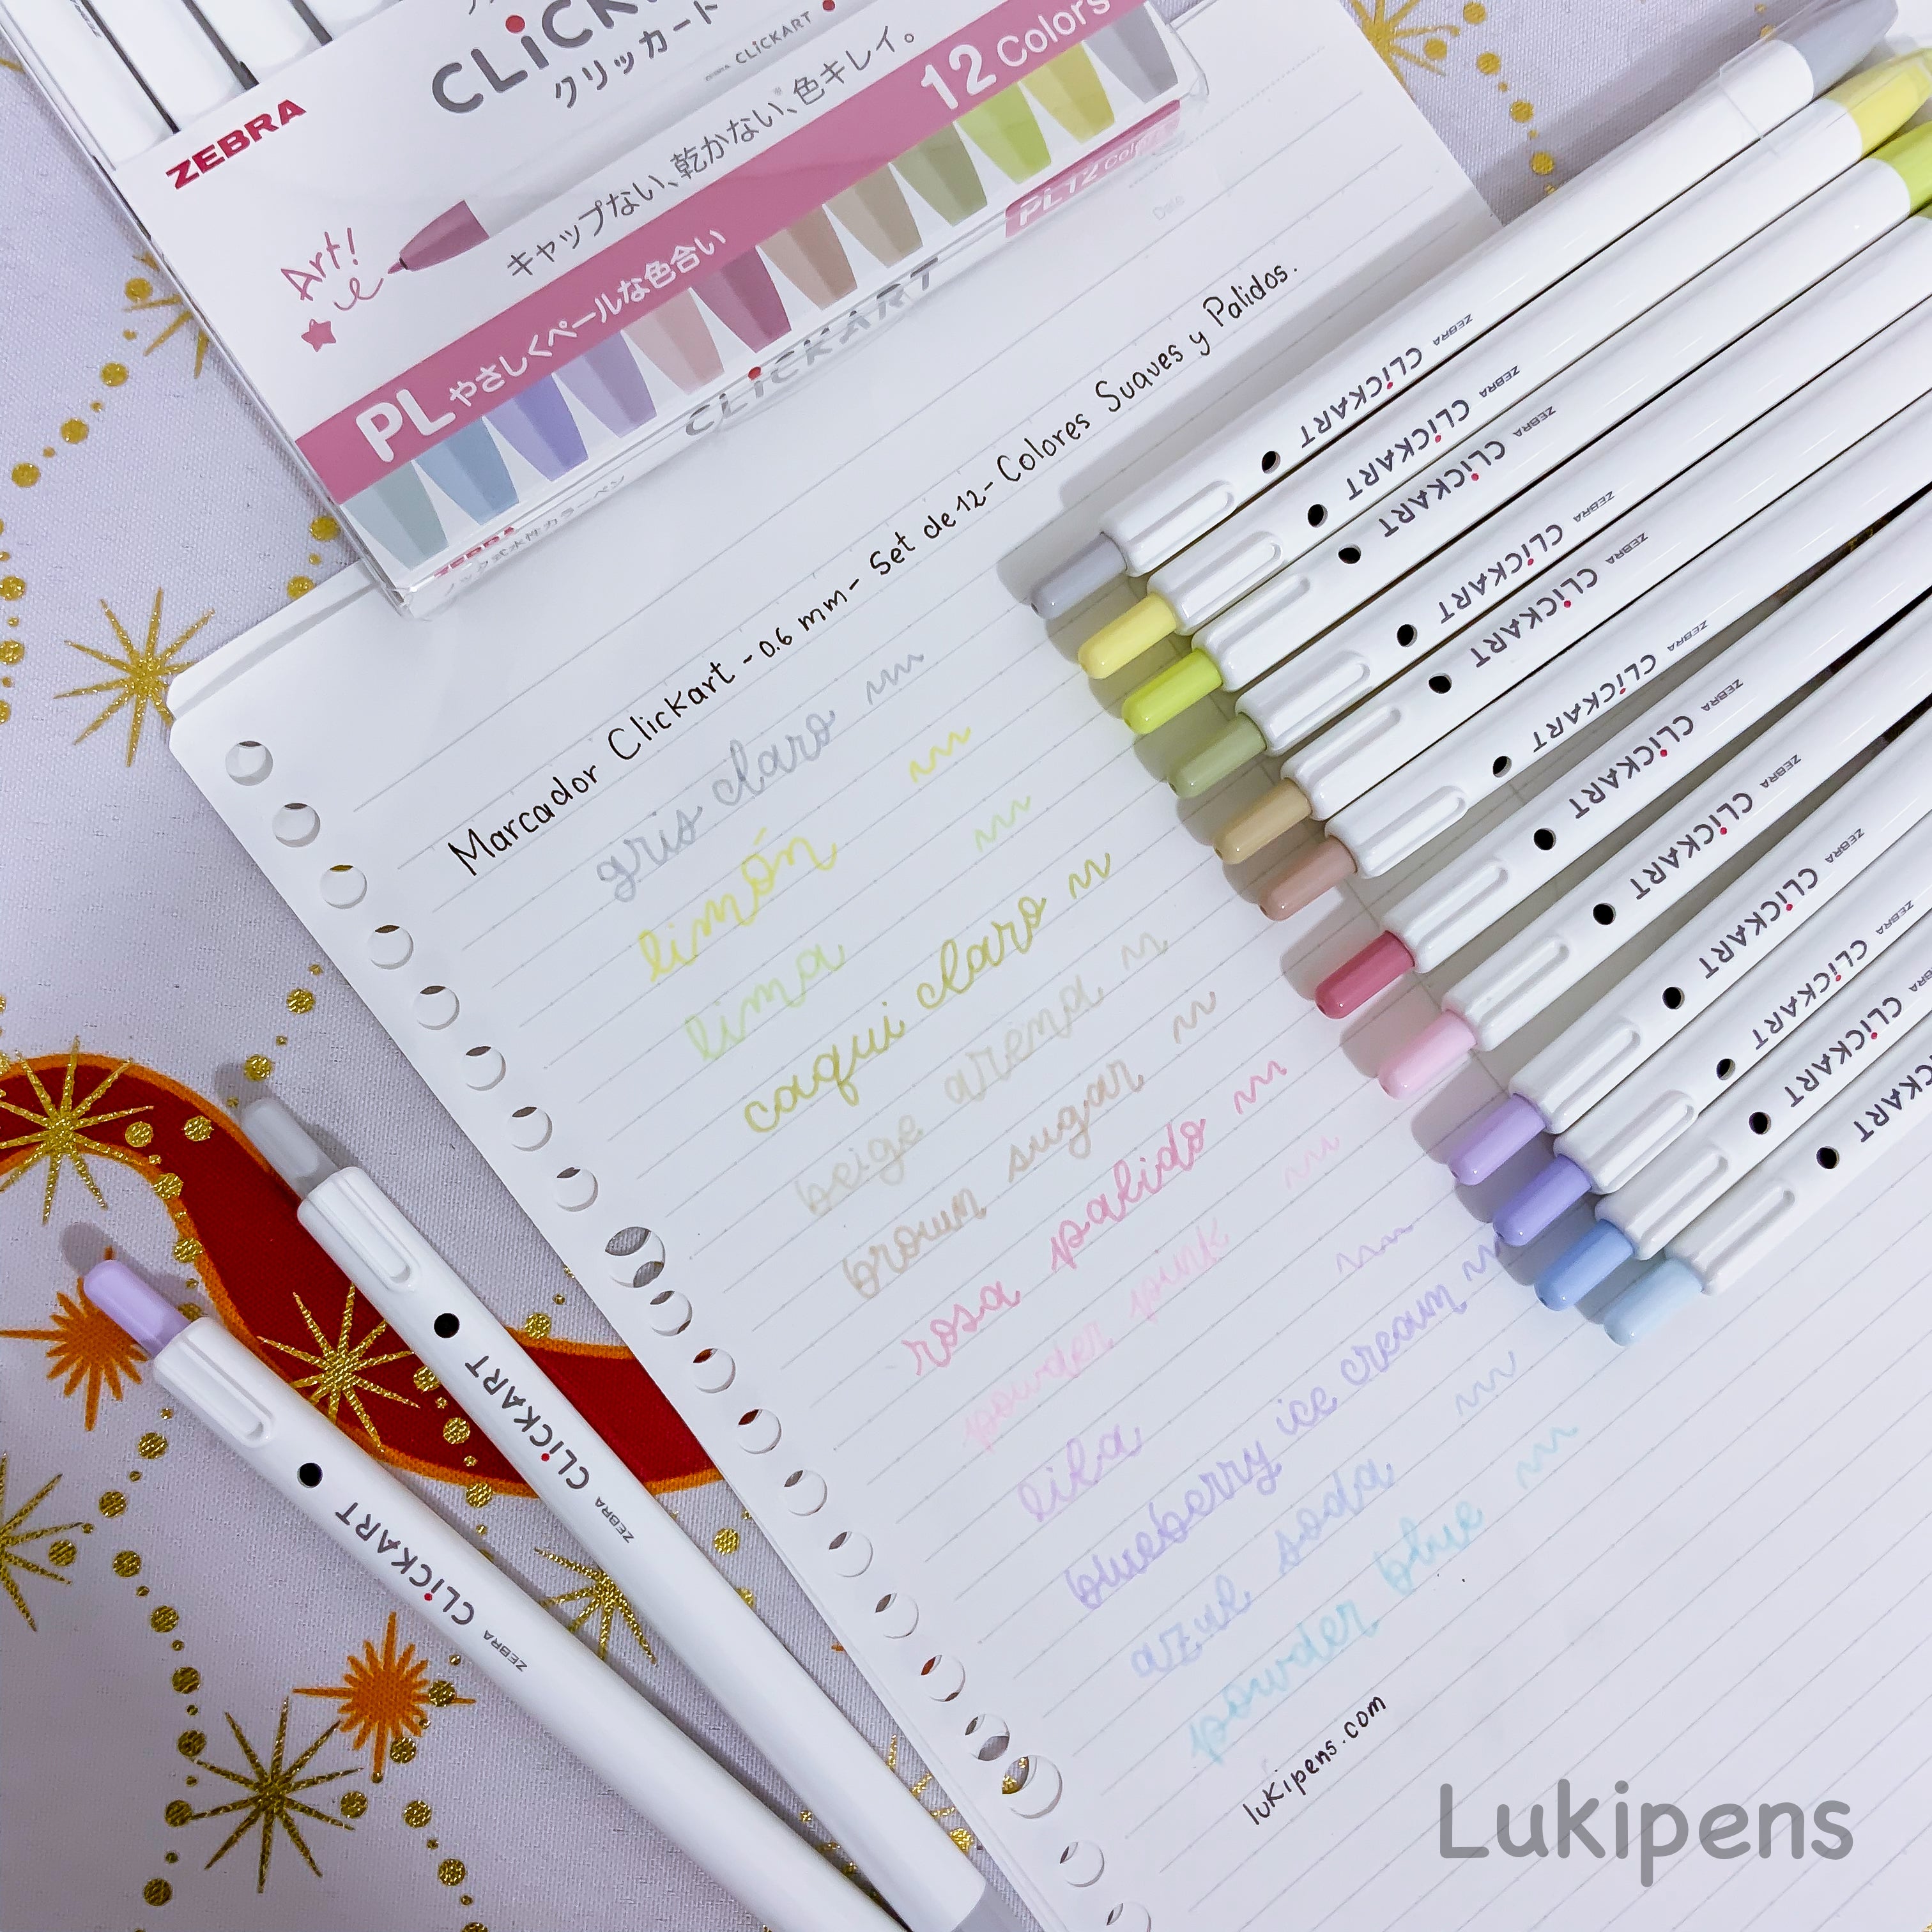 CLiCKART
クリッカート
CLiCKART
ZEBRA
キャップない、乾かない、色キレイ。
Art!
12 Colors
PL やさしくペールな色合い
PL 12 Colors
CLiCKART
ZEBRA
Date
Marcador Clickart - 0.6 mm - Set de 12 - Colores Suaves y Palidos.
gris claro
limón
lima
caqui claro
beige arena
brown sugar
rosa palido
powder pink
lila
blueberry ice cream
azul soda
powder blue
lukipens.com
CLiCKART ZEBRA
CLiCKART ZEBRA
CLiCKART ZEBRA
CLiCKART ZEBRA
CLiCKART ZEBRA
CLiCKART ZEBRA
CLiCKART ZEBRA
CLiCKART ZEBRA
CLiCKART ZEBRA
CLiCKART ZEBRA
CLiCKART
CLiCKART ZEBRA
CLiCKART ZEBRA
Lukipens